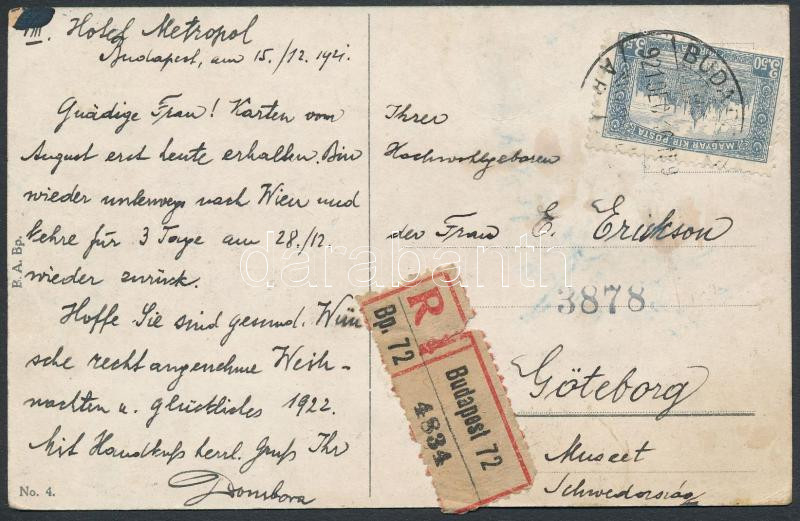 VII. Hotel Metropol
Budapest, am 15./12. 1921.
Gnädige Frau! Karten vom
August erst heute erhalten. Bin
wieder unterwegs nach Wien und
kehre für 3 Tage am 28./12.
wieder zurück.
Hoffe Sie sind gesund. Wün
sche recht angenehme Weih-
nachten u. glückliches 1922.
Mit Handkuß herzl. Gruß Ihr
Dombora
B. A. Bp.
No. 4.
Ihrer
Hochwohlgeboren
der Frau E. Erickson
3878
Göteborg
Museet
Schwedország
R
Bp. 72
Budapest 72
4834
BUDAPEST
921 DE
3.50
3.50
MAGYAR KIR. POSTA
darabanth